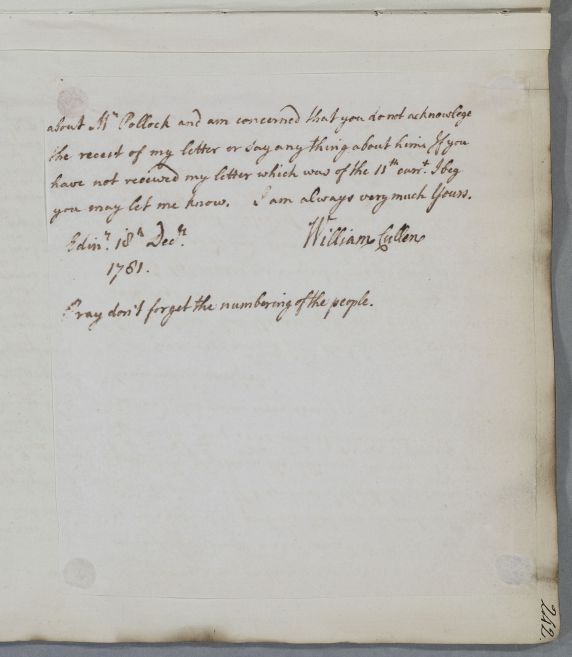 about Mr Pollock and am concerned that you do not acknowlege
the receit of my letter or say any thing about him. If you
have not received my letter which was of the 11th currt. I beg
you may let me know. I am always very much Yours.
Edinr. 18th Decr. William Cullen
1781.
Pray don't forget the numbering of the people.
252